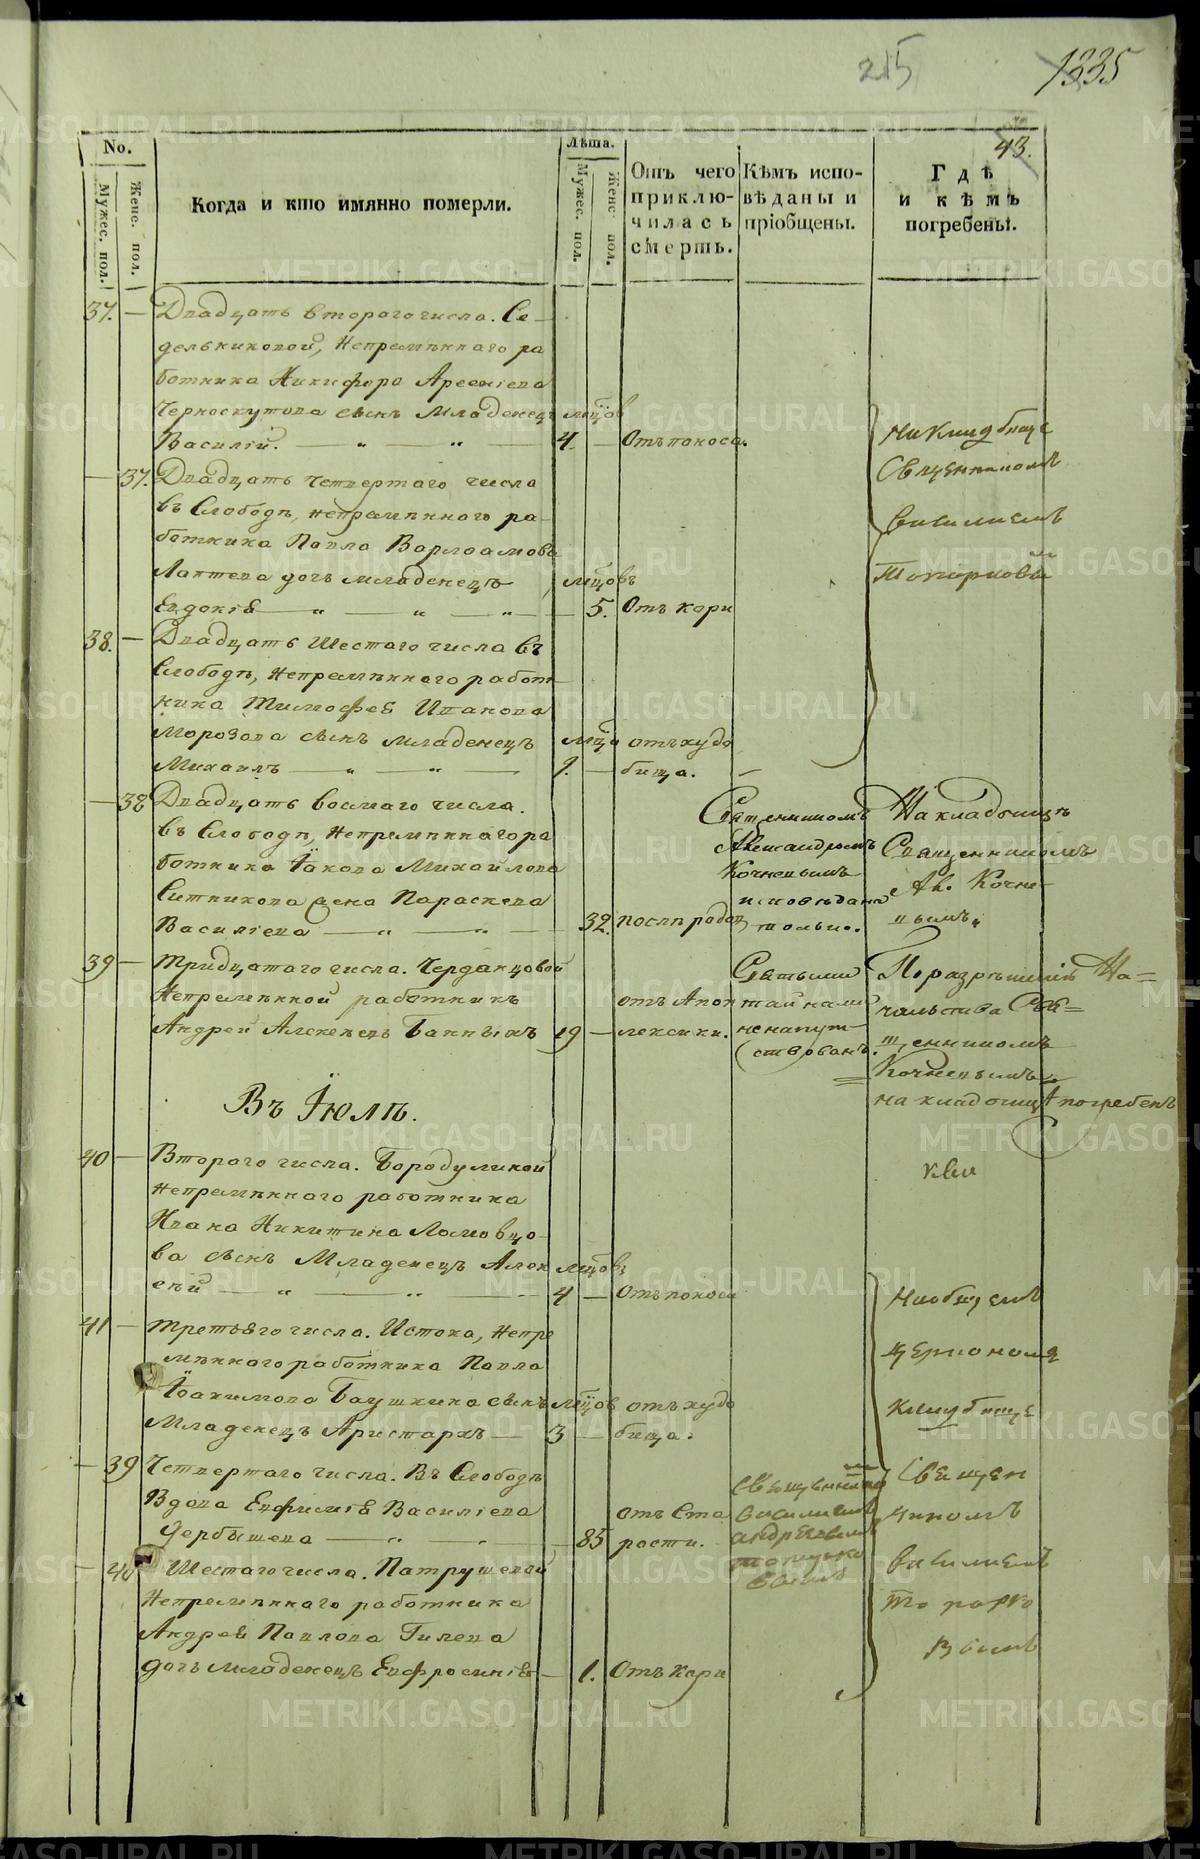 215
1335
43.
No.
Мужес. пол.
Женс. пол.
Когда и кто имянно померли.
Лѣта.
Мужес. пол.
Женс. пол.
Отъ чего приклю-чилась смерть.
Кѣмъ испо-вѣданы и пріобщены.
Гдѣ и кѣмъ погребены.
37. — Двадцать втораго числа. Се-
дельниковой, Непремѣннаго ра
ботника Никифора Арсеніева
Черноскутова сынъ младенецъ мцов
Василій. — „ — „ — 4. — Отъ поноса.
На кладбище
Священникомъ
Василіемъ
Топорковымъ
— 37. Двадцать четвертаго числа
въ Слободѣ, непремѣннаго ра-
ботника Павла Варлаамова
Лаптева дочь младенецъ мцовъ
Евдокія — „ — „ — „ — 5. Отъ кори
38. — Двадцать шестаго числа въ
Слободѣ, Непремѣннаго работ
ника Тимофея Иванова
Морозова сынъ младенецъ мца отъ худо
Михаилъ — „ — „ — 9. — бища. —
— 38 Двадцать восмаго числа.
въ Слободѣ, Непремѣннаго ра
ботника Іакова Михайлова
Ситникова жена Параскева
Василіева — „ — „ — 32. послѣ родов
Священникомъ
Александромъ
Кочневымъ
исповѣдана
только.
На кладбищѣ
Священникомъ
Ал. Кочне-
вымъ.
39 — Тридцатаго числа. Черданцовой
Непремѣнной работникъ
Андрей Алексеевъ Банныхъ 19 —
отъ Апоп
лексики.
Святыми
тайнами
не напут-
ствованъ.
По разрѣшенію На=
чальства Свя=
щенникомъ
Кочневымъ
на кладбищѣ погребенъ
Въ Іюлѣ.
40 — Втораго числа. Бородулиной
Непремѣннаго работника
Ивана Никитина Ломовцо-
ва сынъ Младенецъ Алек мцовъ
сей — „ — „ — 4 — Отъ поноса
41 — Третьяго числа. Истока, Непре
мѣннаго работника Павла
Іоакимова Баушкина сынъ мцов отъ худо
Младенецъ Аристархъ — 3 — бища.
На общемъ
церковном
кладбище
Священ
никомъ
Василіемъ
Топорко
вымъ
— 39 Четвертаго числа. Въ Слободѣ
Вдова Евфимія Василіева
Дербышева — „ — „ — 85
отъ Ста
рости.
Священнико
Василіемъ
Андреевымъ
Топорко
вымъ
— 40 Шестаго числа. Патрушевой
Непремѣннаго работника
Андрея Павлова Гилева
дочь младенецъ Евфросинія — 1. Отъ кори
METRIKI.GASO-URAL.RU